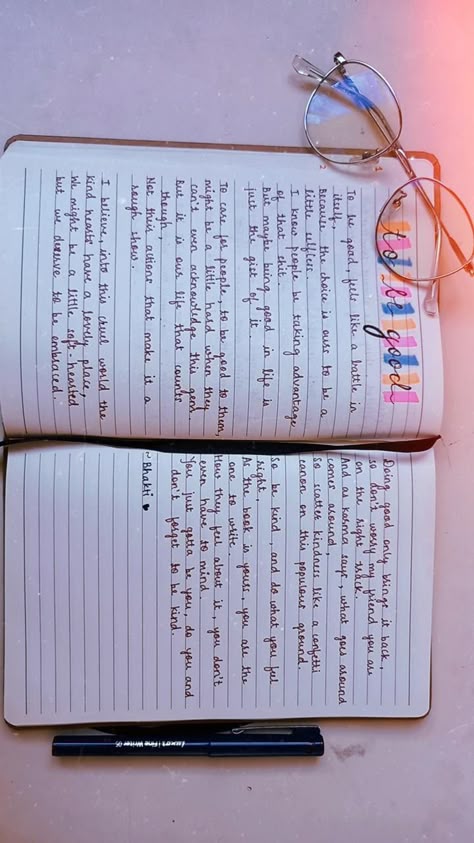 to be good
To be good, feels like a battle in
itself,
Because the choice is ours to be a
little selfless.
I know people be taking advantage
of that shit
But maybe being good in life is
just the gist of it.
To care for people, to be good to them,
might be a little hard when they
can't even acknowledge this gem.
But it is our life that counts
though,
Not their actions that make it a
rough show.
I believe, into this cruel world the
kind hearts have a lovely place,
We might be a little soft-hearted
but we deserve to be embraced.
Doing good only brings it back,
so don't worry my friend you are
on the right track.
And as karma says, what goes around
comes around,
So scatter kindness like a confetti
canon on this populous ground.
So be kind, and do what you feel
right,
As the book is yours, you are the
one to write.
How they feel about it, you don't
even have to mind.
You just gotta be you, do you and
don't forget to be kind.
~ Bhakti ♥
Luxor Fine Writer 05